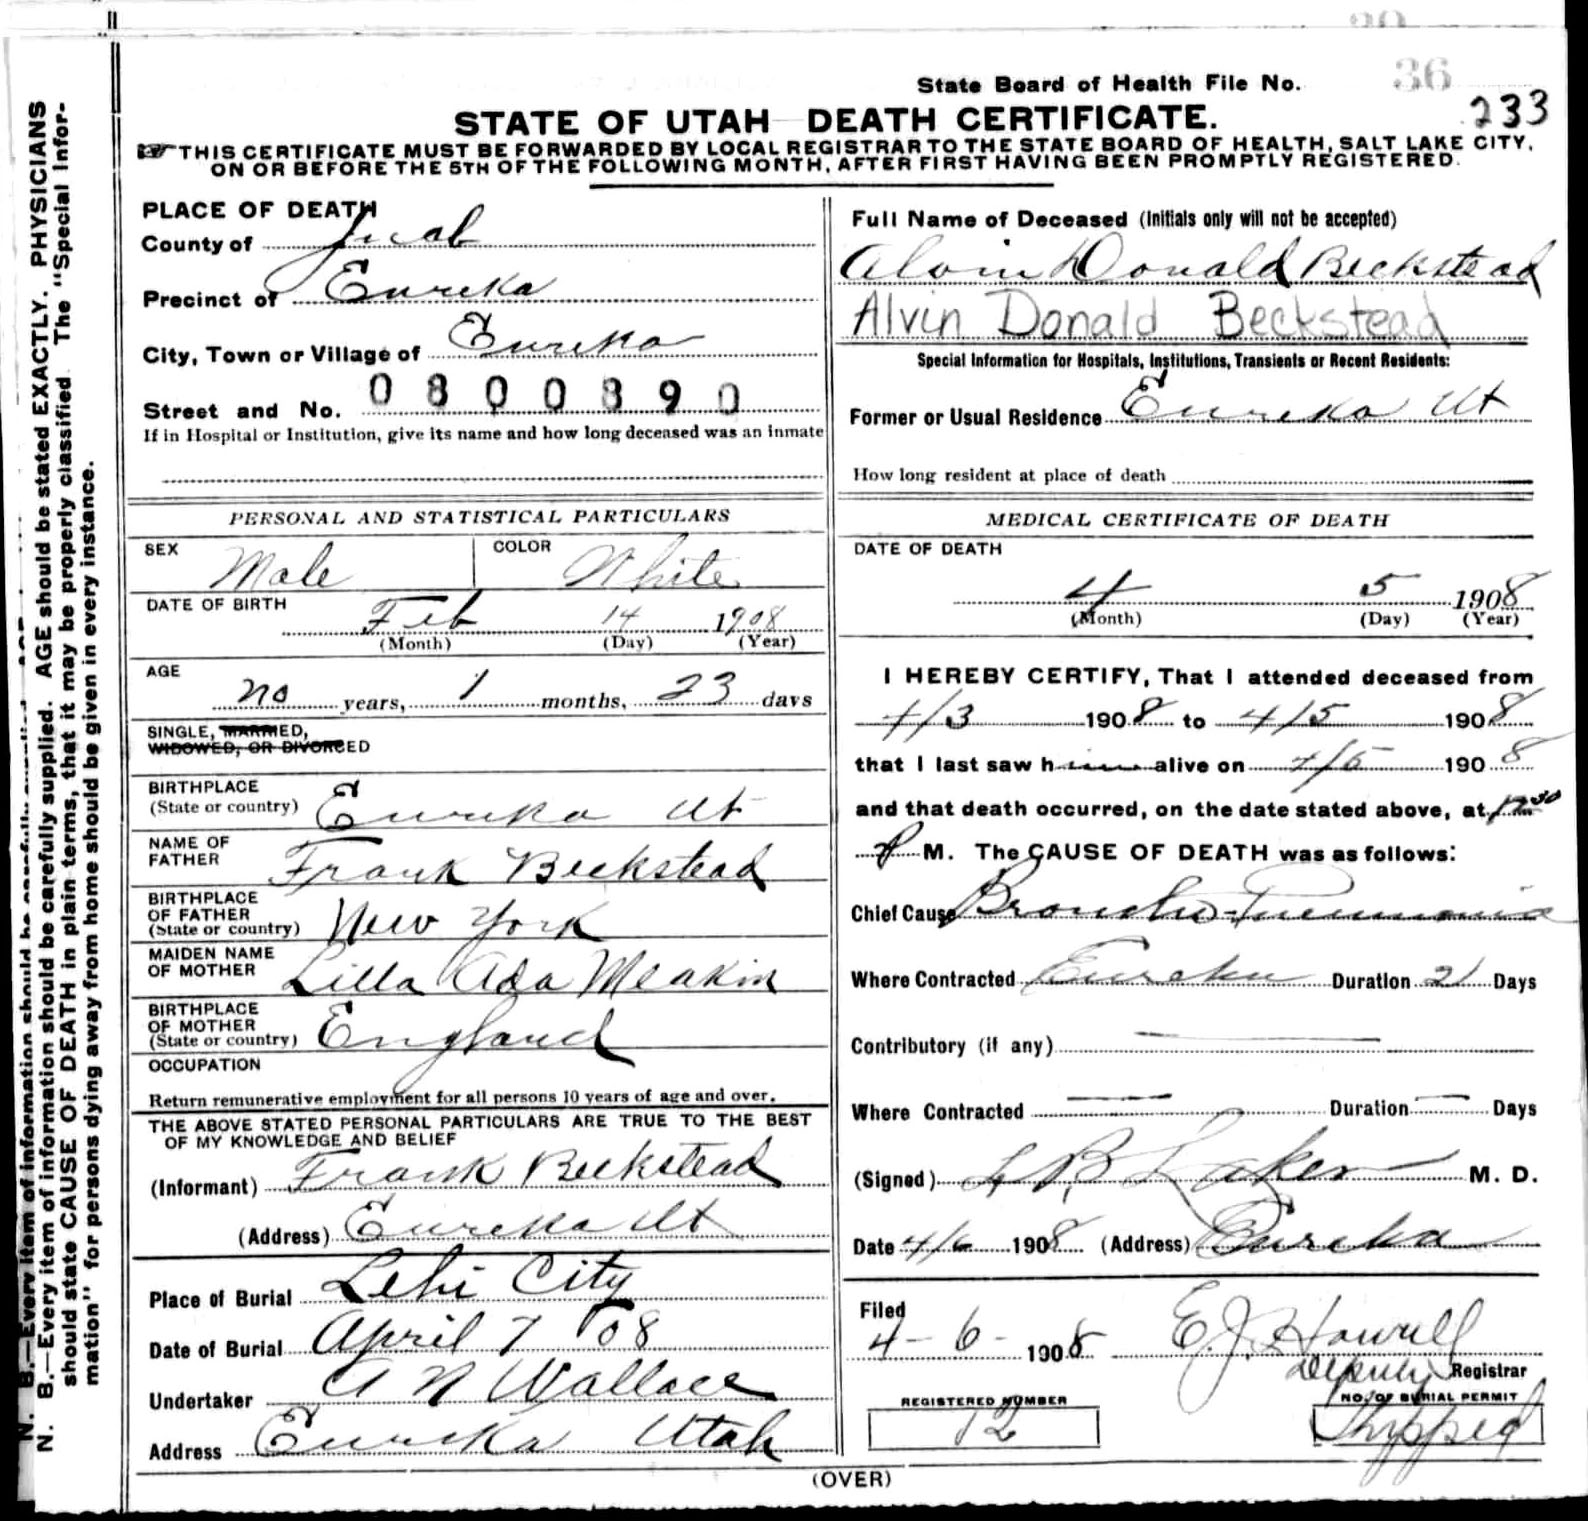 State Board of Health File No. 36
233
STATE OF UTAH DEATH CERTIFICATE.
THIS CERTIFICATE MUST BE FORWARDED BY LOCAL REGISTRAR TO THE STATE BOARD OF HEALTH, SALT LAKE CITY,
ON OR BEFORE THE 5TH OF THE FOLLOWING MONTH, AFTER FIRST HAVING BEEN PROMPTLY REGISTERED.
N. B.—Every item of information should be carefully supplied. AGE should be stated EXACTLY. PHYSICIANS
should state CAUSE OF DEATH in plain terms, that it may be properly classified The "Special Infor-
mation" for persons dying away from home should be given in every instance.
PLACE OF DEATH
County of Juab
Precinct of Eureka
City, Town or Village of Eureka
Street and No. 0800390
If in Hospital or Institution, give its name and how long deceased was an inmate
PERSONAL AND STATISTICAL PARTICULARS
SEX Male COLOR White
DATE OF BIRTH
Feb 14 1908
(Month) (Day) (Year)
AGE
no years, 1 months, 23 days
SINGLE, MARRIED,
WIDOWED, OR DIVORCED
BIRTHPLACE
(State or country) Eureka Ut
NAME OF
FATHER Frank Beckstead
BIRTHPLACE
OF FATHER
(State or country) New York
MAIDEN NAME
OF MOTHER Lilla Ada Meakin
BIRTHPLACE
OF MOTHER
(State or country) England
OCCUPATION
Return remunerative employment for all persons 10 years of age and over.
THE ABOVE STATED PERSONAL PARTICULARS ARE TRUE TO THE BEST
OF MY KNOWLEDGE AND BELIEF
(Informant) Frank Beckstead
(Address) Eureka Ut
Place of Burial Lehi City
Date of Burial April 7 08
Undertaker A N Wallace
Address Eureka Utah
Full Name of Deceased (Initials only will not be accepted)
Alvin Donald Beckstead
Alvin Donald Beckstead
Special Information for Hospitals, Institutions, Transients or Recent Residents:
Former or Usual Residence Eureka Ut
How long resident at place of death
MEDICAL CERTIFICATE OF DEATH
DATE OF DEATH
4 5 1908
(Month) (Day) (Year)
I HEREBY CERTIFY, That I attended deceased from
4/3 1908 to 4/5 1908
that I last saw him alive on 4/5 1908
and that death occurred, on the date stated above, at 12 30
P M. The CAUSE OF DEATH was as follows:
Chief Cause Broncho-Pneumonia
Where Contracted Eureka Duration 21 Days
Contributory (if any) —
Where Contracted — Duration — Days
(Signed) B Laker M. D.
Date 4/6 1908 (Address) Eureka
Filed
4-6-1908 E.J. Howell
Deputy Registrar
REGISTERED NUMBER
12
NO. OF BURIAL PERMIT
Shipped
(OVER)